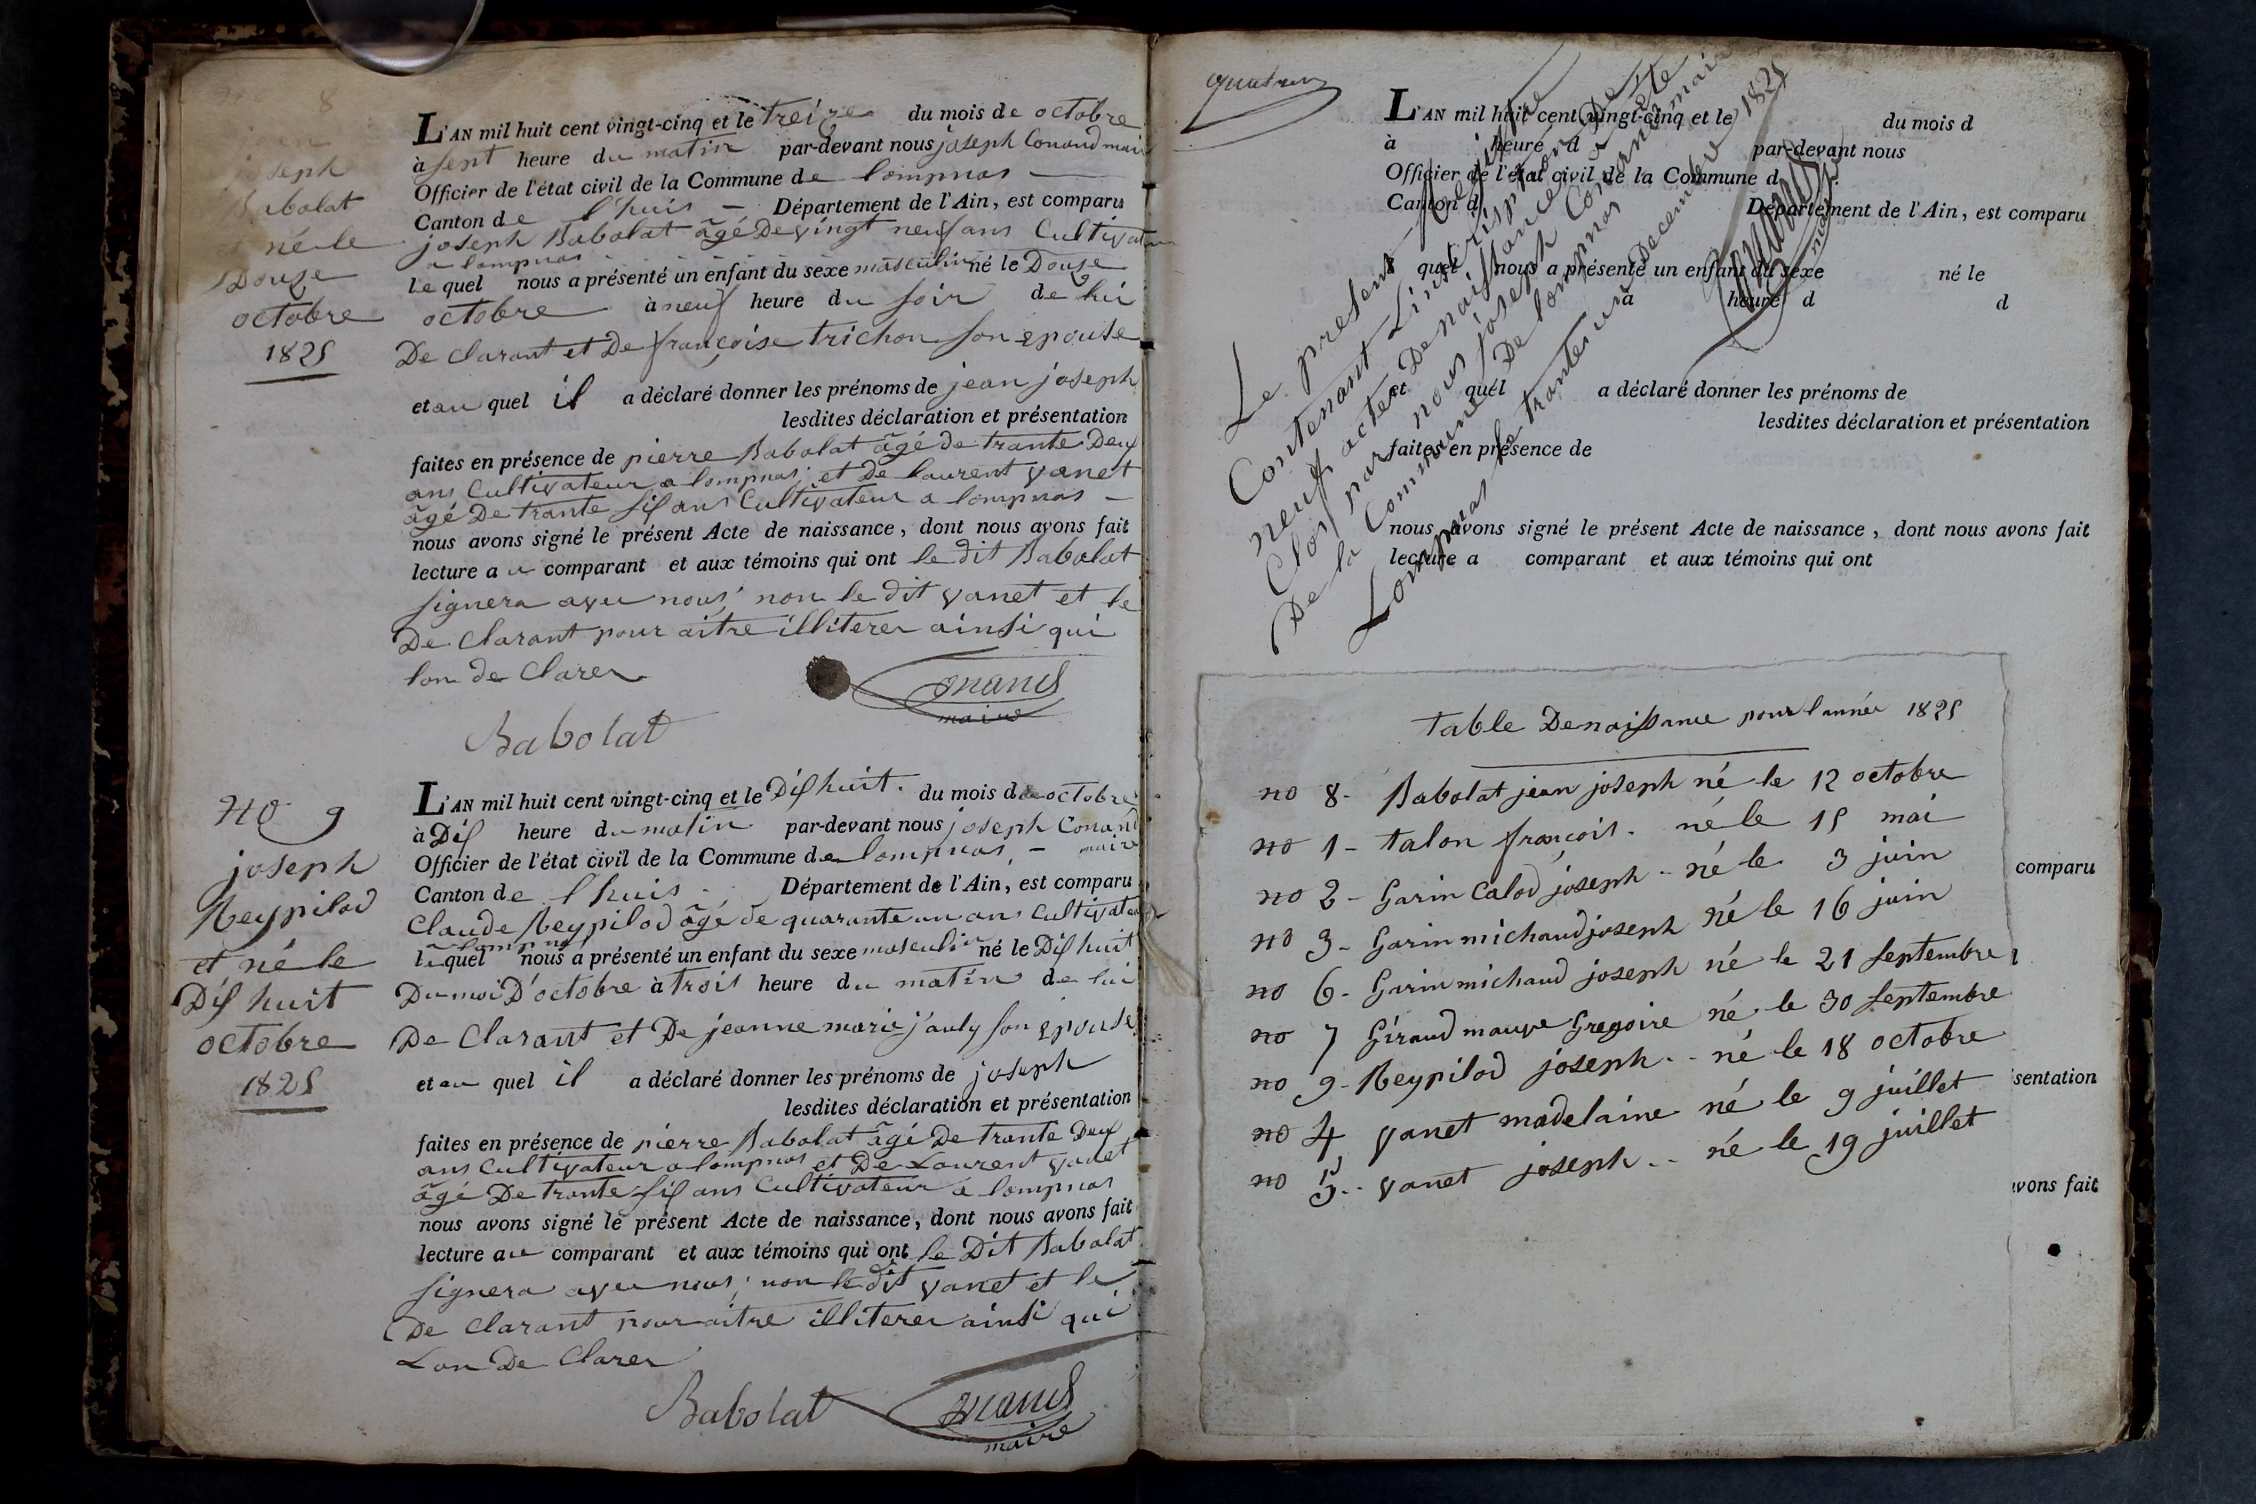 8
jean
joseph
Babolat
né le
Douze
octobre
1825
L'AN mil huit cent vingt-cinq et le treize du mois de octobre
à sept heure du matin par-devant nous joseph Conand maire
Officier de l'état civil de la Commune de lompnas
Canton de l'huis Département de l'Ain, est comparu
joseph Babolat âgé De vingt neuf ans Cultivateur
a lompnas
le quel nous a présenté un enfant du sexe masculin né le Douze
octobre à neuf heure du soir de lui
De Clarant et De françoise trichon son epouse
et au quel il a déclaré donner les prénoms de jean joseph
lesdites déclaration et présentation
faites en présence de pierre Babolat âgé de trante Deux
ans Cultivateur a lompnas et De laurent vanet
âgé De trante six ans Cultivateur a lompnas
nous avons signé le présent Acte de naissance, dont nous avons fait
lecture au comparant et aux témoins qui ont le dit Babolat
signera avec nous non le dit vanet et le
De Clarant pour aitre illiterer ainsi qui
lon de Clarer
Conand
maire
Babolat
no 9
joseph
Reypilod
et né le
Dix huit
octobre
1825
L'AN mil huit cent vingt-cinq et le Dix huit du mois de octobre
à Dix heure du matin par-devant nous joseph Conand
maire
Officier de l'état civil de la Commune de lompnas
Canton de l'huis Département de l'Ain, est comparu
Claude Reypilod âgé de quarante un ans Cultivateur
a lompnas
le quel nous a présenté un enfant du sexe masculin né le Dix huit
Du moi D'octobre à trois heure du matin de lui
De Clarant et De jeanne marie j'auly son epouse
et au quel il a déclaré donner les prénoms de joseph
lesdites déclaration et présentation
faites en présence de pierre Babolat âgé De trante Deux
ans Cultivateur a lompnas et De Laurent vanet
âgé De trante six ans Cultivateur a lompnas
nous avons signé le présent Acte de naissance, dont nous avons fait
lecture au comparant et aux témoins qui ont le Dit Babolat
signera avec nous, non le dit vanet et le
De Clarant pour aitre illiterer ainsi qui
Lon De Clarer
Babolat
Conand
maire
L'AN mil huit cent vingt-cinq et le du mois d
à heure d par-devant nous
Officier de l'état civil de la Commune d
Canton d Département de l'Ain, est comparu
l quel nous a présenté un enfant du sexe né le
à heure d d
et quel a déclaré donner les prénoms de
lesdites déclaration et présentation
faites en présence de
nous avons signé le présent Acte de naissance, dont nous avons fait
lecture a comparant et aux témoins qui ont
Le present Registre
Contenant L'inscription De
neuf actes De naissance a été
Clos par nous joseph Conand maire
De la Commune De lompnas
Lompnas le trante un Decembre 1825
Conand
maire
table De naissance pour l'année 1825
no 8 - Babolat jean joseph né le 12 octobre
no 1 - talon françois. né le 15 mai
no 2 - Garin Calod joseph - né le 3 juin
no 3 - Garin michaud joseph né le 16 juin
no 6 - Garin michaud joseph né le 21 septembre
no 7 Giraud mauve Gregoire né le 30 septembre
no 9 - Reypilod joseph - né le 18 octobre
no 4 vanet madelaine né le 9 juillet
no 5 vanet joseph né le 19 juillet
comparu
sentation
vons fait